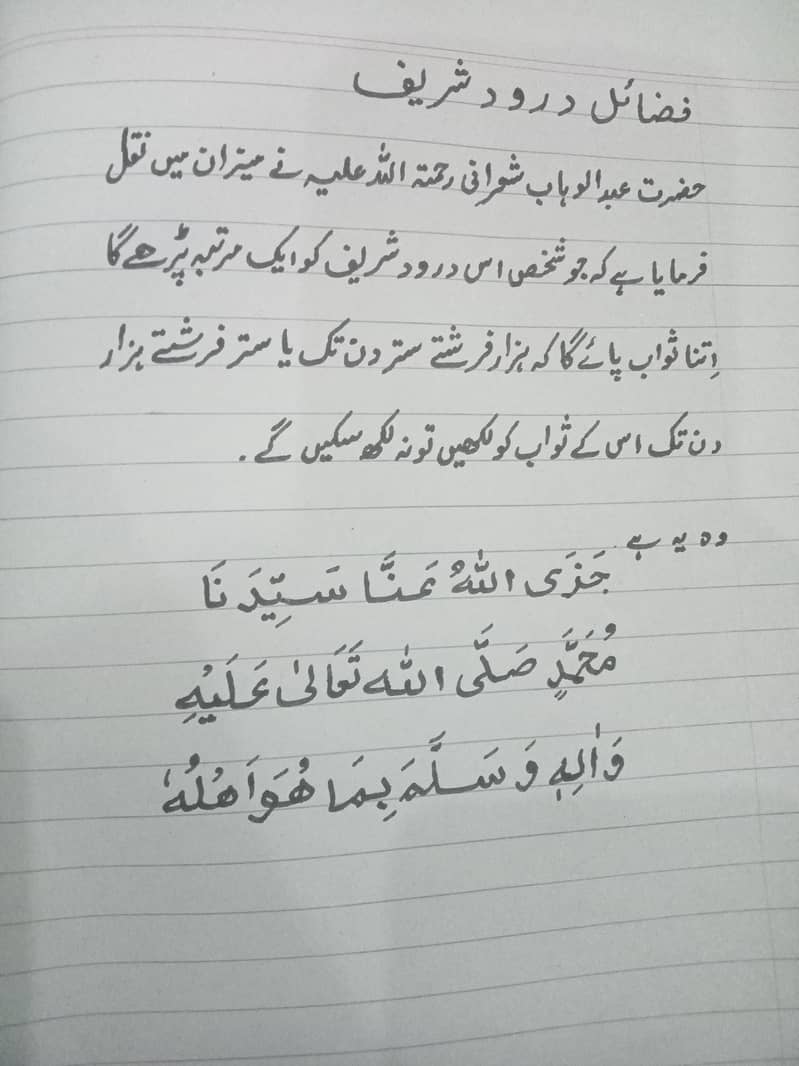 فضائل درود شریف
حضرت عبدالوہاب شعرانی رحمتہ اللہ علیہ نے میزان میں نقل
فرمایا ہے کہ جو شخص اس درود شریف کو ایک مرتبہ پڑھے گا
اِتنا ثواب پائے گا کہ ہزار فرشتے ستر دن تک یا ستر فرشتے ہزار
دن تک اس کے ثواب کو لکھیں تو نہ لکھ سکیں گے ۔
وہ یہ ہے جَزَی اللہُ عَنَّا سَیِّدَنَا
مُحَمَّدٍ صَلَّی اللہ تَعَالیٰ عَلَیْہِ
وَاٰلِہٖ وَسَلَّمَ بِمَا ھُوَ اَھْلُہٗ